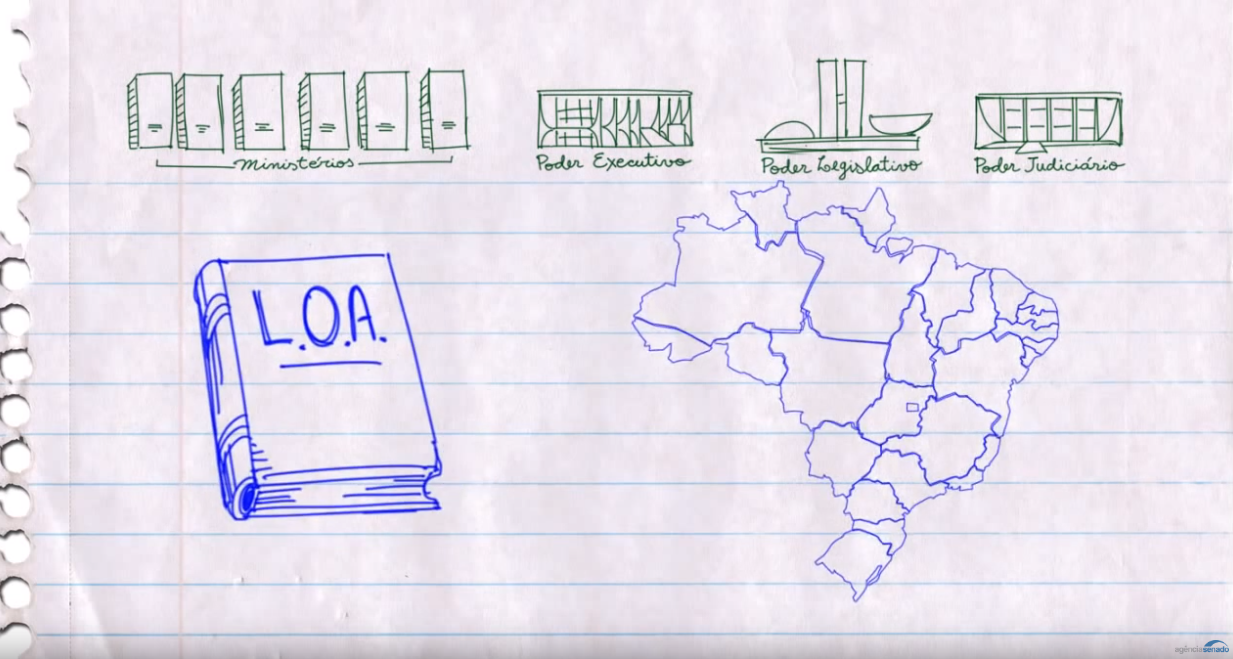 Ministérios
Poder Executivo
Poder Legislativo
Poder Judiciário
L.O.A.
agênciasenado